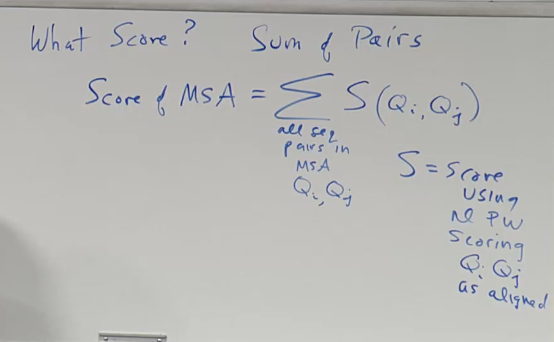 What Score? Sum of Pairs
Score of MSA = ∑ S(Qi, Qj)
all seq
pairs in
MSA
Qi, Qj
S = score
using
PW
scoring
Qi Qj
as aligned